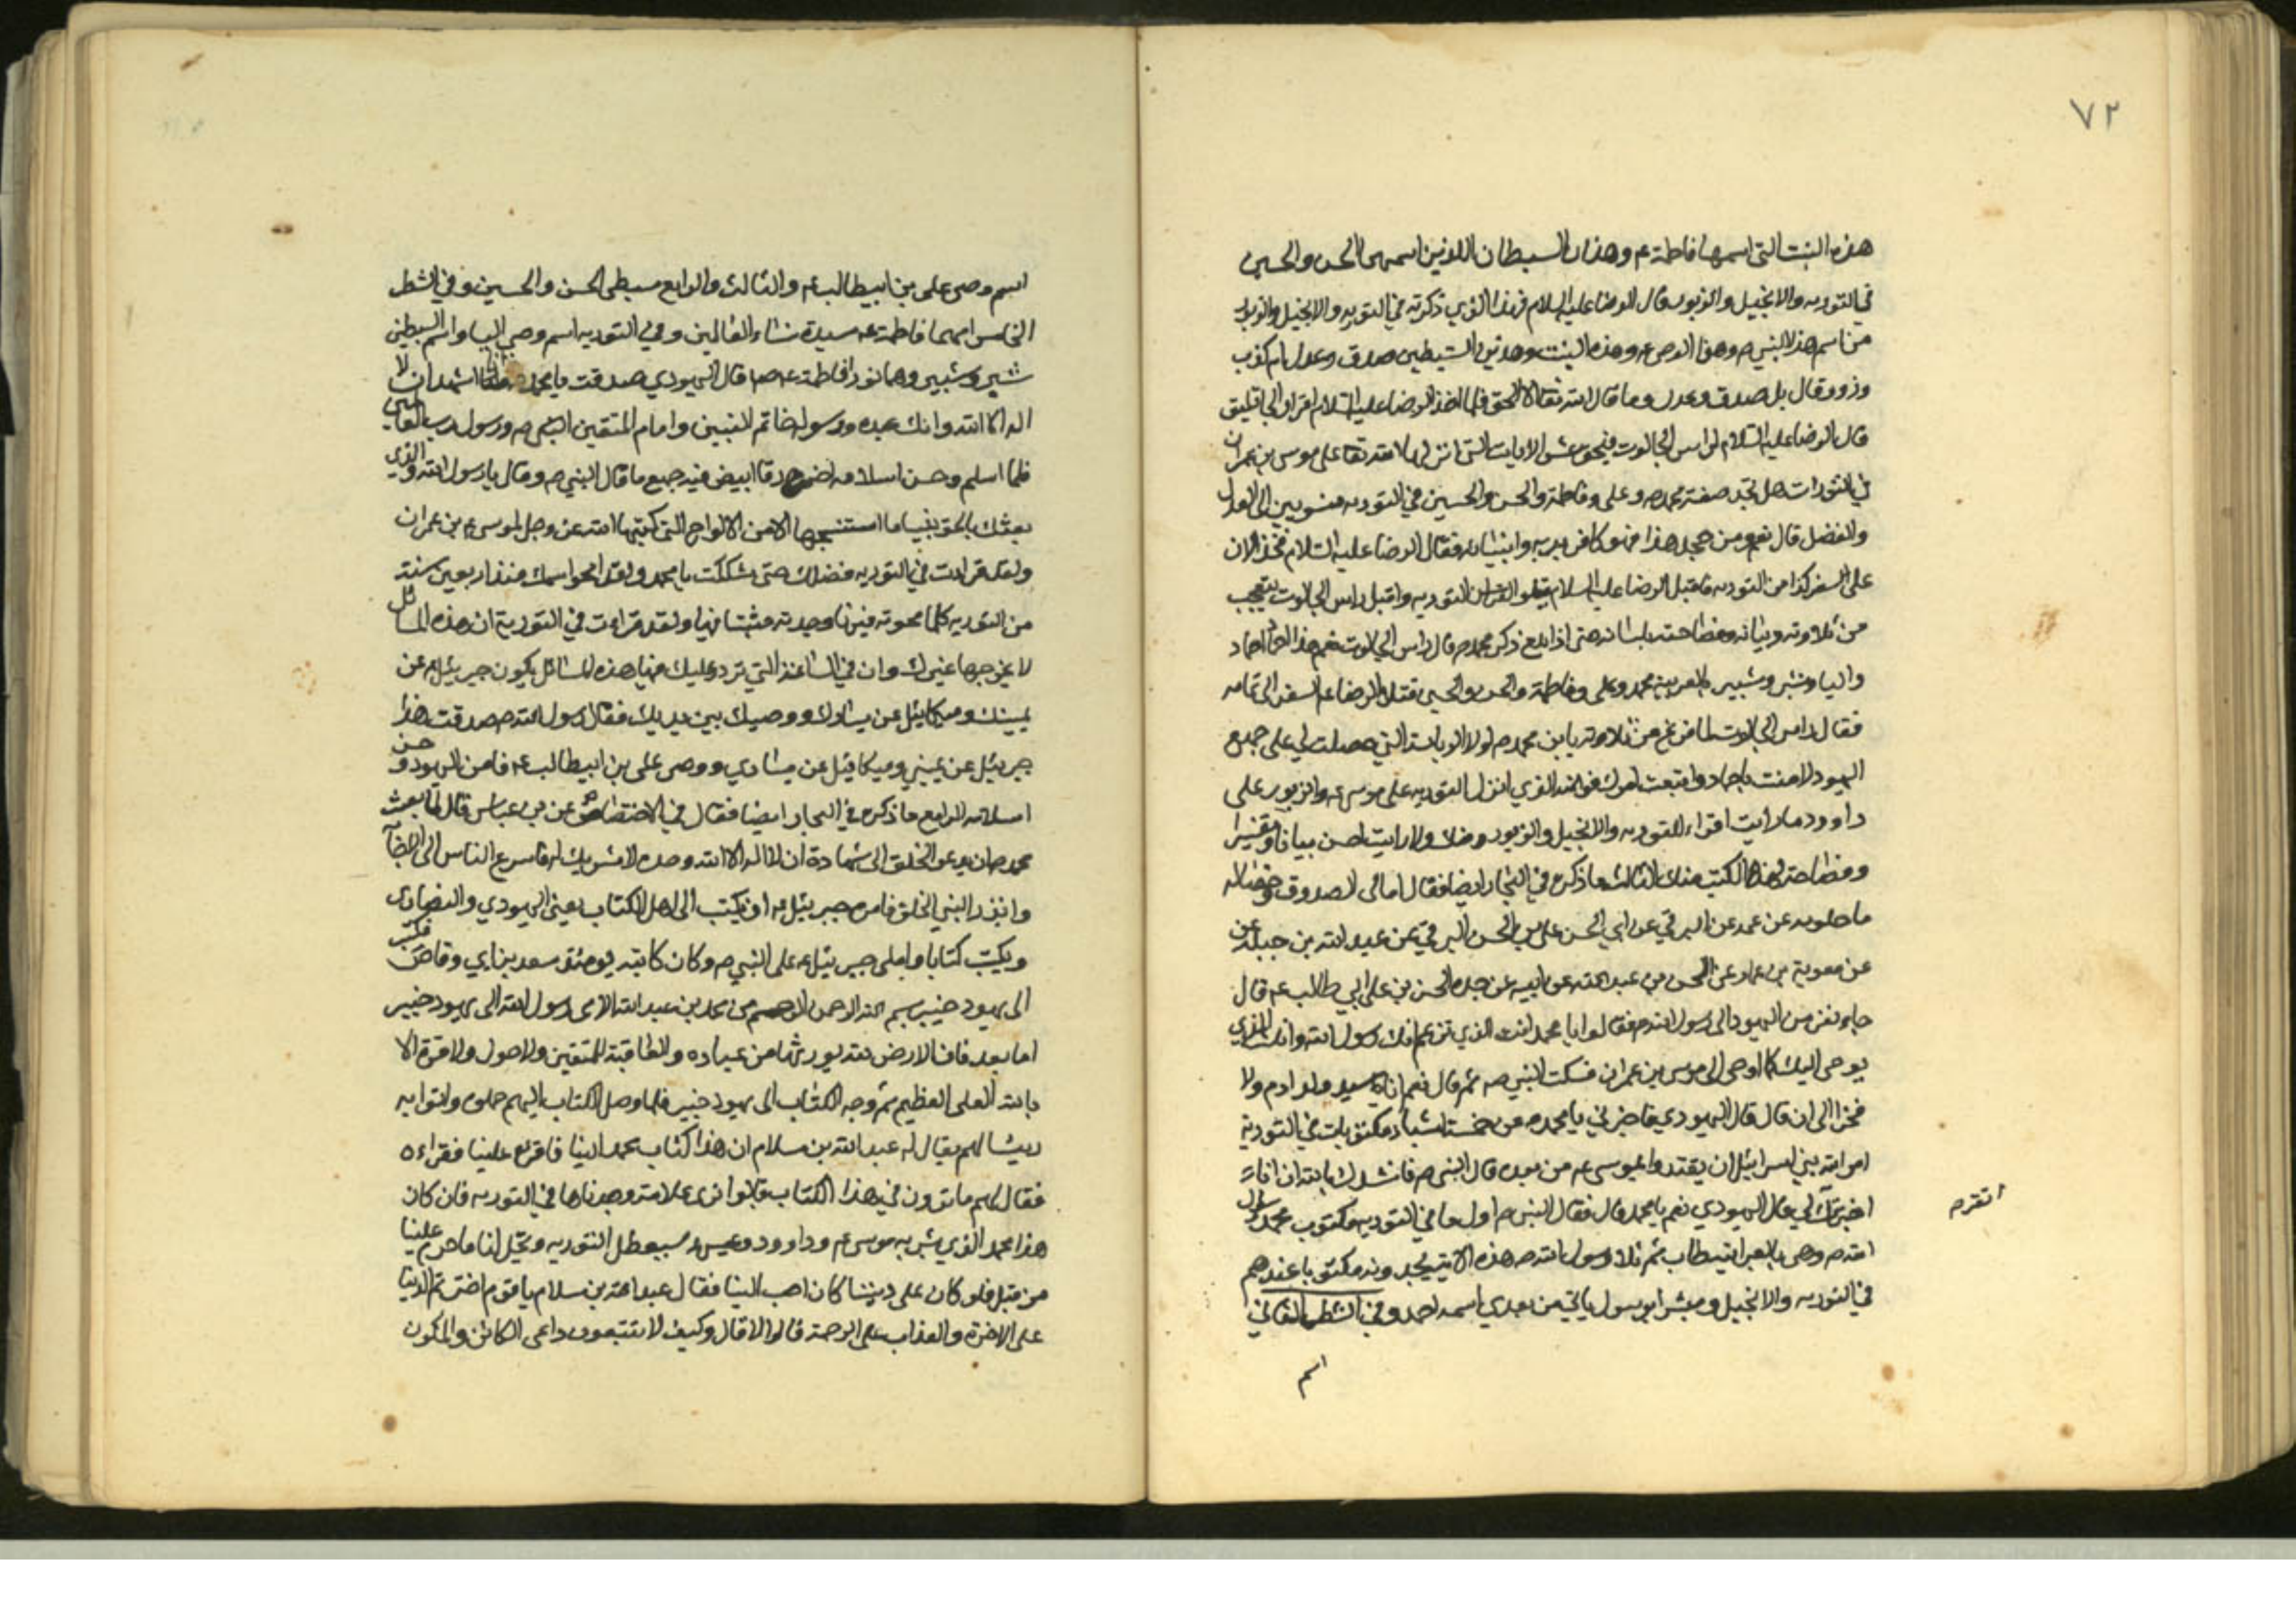 ٧٢
هذه البنت التي اسمها فاطمة ع وهذان السبطان اللذين اسمهما الحسن والحسين
في التوريه والانجيل والزبور قال الرضا عليه السلام فهذا الذي ذكرته في التوريه والانجيل والزبور
من اسم هذا النبي ص وهذا الوصي ع وهذه البنت وهذين السبطين صدق وعدل ام كذب
وزور قال بل صدق وعدل وما قال الله تعالى الا الحق فلما اخذ الرضا عليه السلام اقرار الجاثليق
قال الرضا عليه السلام لراس الجالوت فبحق عشر الايات التي انزلها الله تعا على موسى بن عمران
في التورات هل تجد صفة محمد ص وعلي وفاطمة والحسن والحسين في التوريه منسوبين الى العدل
والفضل قال نعم ومن جحد هذا فهو كافر بربه وانبيائه فقال الرضا عليه السلام فخذ الان
على السفر كذا من التوريه فاقبل الرضا عليه السلام يتلو التوريه واقبل راس الجالوت يتعجب
من تلاوته وبيانه وفصاحته بلسانه حتى اذا بلغ ذكر محمد ص قال راس الجالوت نعم هذا احماد
واليا وشبر وشبير بالعربية محمد وعلي وفاطمة والحسن والحسين فتلا الرضا ع السفر الى تمامه
فقال راس الجالوت لما فرغ من تلاوته يا بن محمد ص لولا الرياسة التي حصلت لي على جميع
اليهود لامنت باحماد واتبعت امرك فوالله الذي انزل التوريه على موسى ع والزبور على
داوود ما رايت اقراء للتوريه والانجيل والزبور منك ولا رايت احسن بيانا وتفسيرا
وفصاحة لهذه الكتب منك الثالث ما ذكره في البحار ايضا فقال امالي الصدوق وخصاله
ماجلويه عن عمه عن البرقي عن ابي الحسن علي بن الحسن البرقي عن عبد الله بن جبلة عن
عن معوية بن عمار عن الحسن بن عبد الله عن ابيه عن جده الحسن بن علي ابي طالب ع قال
جاء نفر من اليهود الى رسول الله ص فقالوا يا محمد انت الذي تزعم انك رسول الله وانك الذي
يوحى اليك كما اوحى الى موسى بن عمران فسكت النبي ص ثم قال نعم انا سيد ولد ادم ولا
فخر الى ان قال قال اليهودي فاخبرني يا محمد ص عن خمسة اشياء مكتوبات في التورية
امر الله بني اسرائيل ان يقتدوا بموسى ع من بعده قال النبي ص فانشدك بالله ان انا
اخبرتك لي قال اليهودي نعم يا محمد قال فقال النبي ص اول ما في التوريه مكتوب محمد رسول
الله ص وهي بالعبرانية طاب ثم تلا رسول الله ص هذه الاية يجدونه مكتوبا عندهم
في التوريه والانجيل ومبشرا برسول ياتي من بعدي اسمه احمد وفي الشطر الثاني
اسم
اسم وصي علي بن ابيطالب ع والثالث والرابع سبطي الحسن والحسين وفي الشطر
الخامس امهما فاطمة ع سيدة نساء العالمين وفي التوريه اسم وصي اليا واسم السبطين
شبر وشبير وهما نورا فاطمة ع ص قال اليهودي صدقت يا محمد اشهد ان لا
اله الا الله وانك عبده ورسوله خاتم النبيين وامام المتقين ورسول رب العالمين
فلما اسلم وحسن اسلامه اخرج رقا ابيض فيه جميع ما قال النبي ص وقال يا رسول الله والذي
بعثك بالحق نبيا ما استنسختها الا من الالواح التي كتبها الله عز وجل لموسى ع بن عمران
ولقد قرات في التوريه فضلك حتى شككت يا محمد ولقد امحو اسمك منذ اربعين سنة
من التوريه كلما محوته فيها وجدته مثبتا فيها ولقد قرات في التورية ان هذه المسائل
لا يخرجها غيرك وان في الساعة التي ترد عليك فيها هذه المسائل يكون جبرئيل ع عن
يمينك وميكائيل عن يسارك ووصيك بين يديك فقال رسول الله ص صدقت هذا
جبرئيل عن يميني وميكائيل عن يساري ووصي علي بن ابيطالب ع فامن اليهود وحسن
اسلامه الرابع ما ذكره في البحار ايضا فقال في الاختصاص عن بن عباس قال لما بعث
محمد ص ان يدعو الخلق الى شهادة ان لا اله الا الله وحده لا شريك له فاسرع الناس الى الاجابة
وانذر النبي الخلق فامره جبرئيل ع ان يكتب الى اهل الكتاب يعني اليهودي والنصارى
ويكتب كتابا واملى جبرئيل ع على النبي ص وكان كاتبه يومئذ سعد بن ابي وقاص فكتب
الى يهود خيبر بسم الله الرحمن الرحيم من محمد بن عبد الله الامي رسول الله الى يهود خيبر
اما بعد فان الارض لله يورثها من عباده والعاقبة للمتقين ولا حول ولا قوة الا
بالله العلي العظيم ثم وجه الكتاب الى يهود خيبر فلما وصل الكتاب اليهم حملوه واتوا به
رئيسا لهم يقال له عبد الله بن سلام ان هذا كتاب محمد الينا فاقرءه علينا فقراءه
فقال لهم ما ترون في هذا الكتاب قالوا نرى علامة وجدناها في التوريه فان كان
هذا محمد الذي بشر به موسى ع وداوود وعيسى ع سيعطل التوريه ويحل لنا ما حرم علينا
من قبل فلو كان على ديننا كان احب الينا فقال عبد الله بن سلام يا قوم اخترتم الدنيا
على الاخرة والعذاب على الرحمة قالوا لا قال وكيف لا تتبعون داعي الله